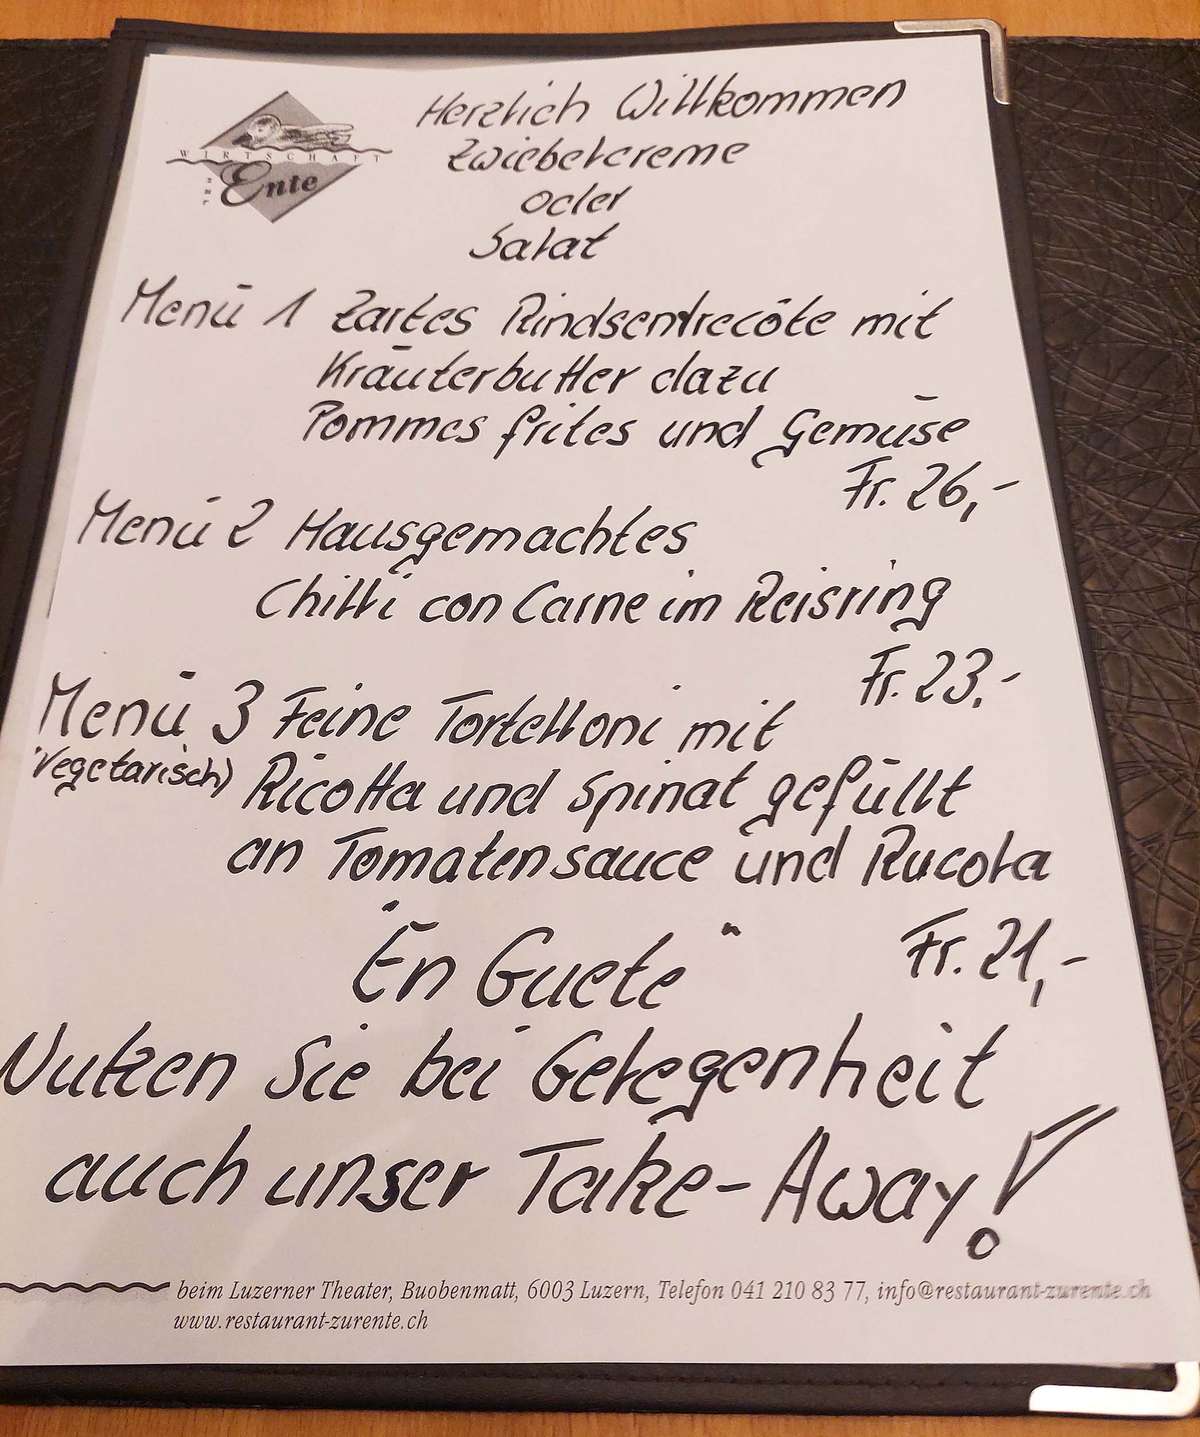 WIRTSCHAFT
ZUR
Ente
Herzlich Willkommen
Zwiebelcreme
oder
Salat
Menü 1 Zartes Rindsentrecôte mit
Kräuterbutter dazu
Pommes frites und Gemüse
Fr. 26,-
Menü 2 Hausgemachtes
Chilli con Carne im Reisring
Fr. 23.-
Menü 3 Feine Tortelloni mit
(Vegetarisch) Ricotta und Spinat gefüllt
an Tomatensauce und Rucola
Fr. 21,-
"En Guete"
Nutzen Sie bei Gelegenheit
auch unser Take-Away!
beim Luzerner Theater, Buobenmatt, 6003 Luzern, Telefon 041 210 83 77, info@restaurant-zurente.ch
www.restaurant-zurente.ch